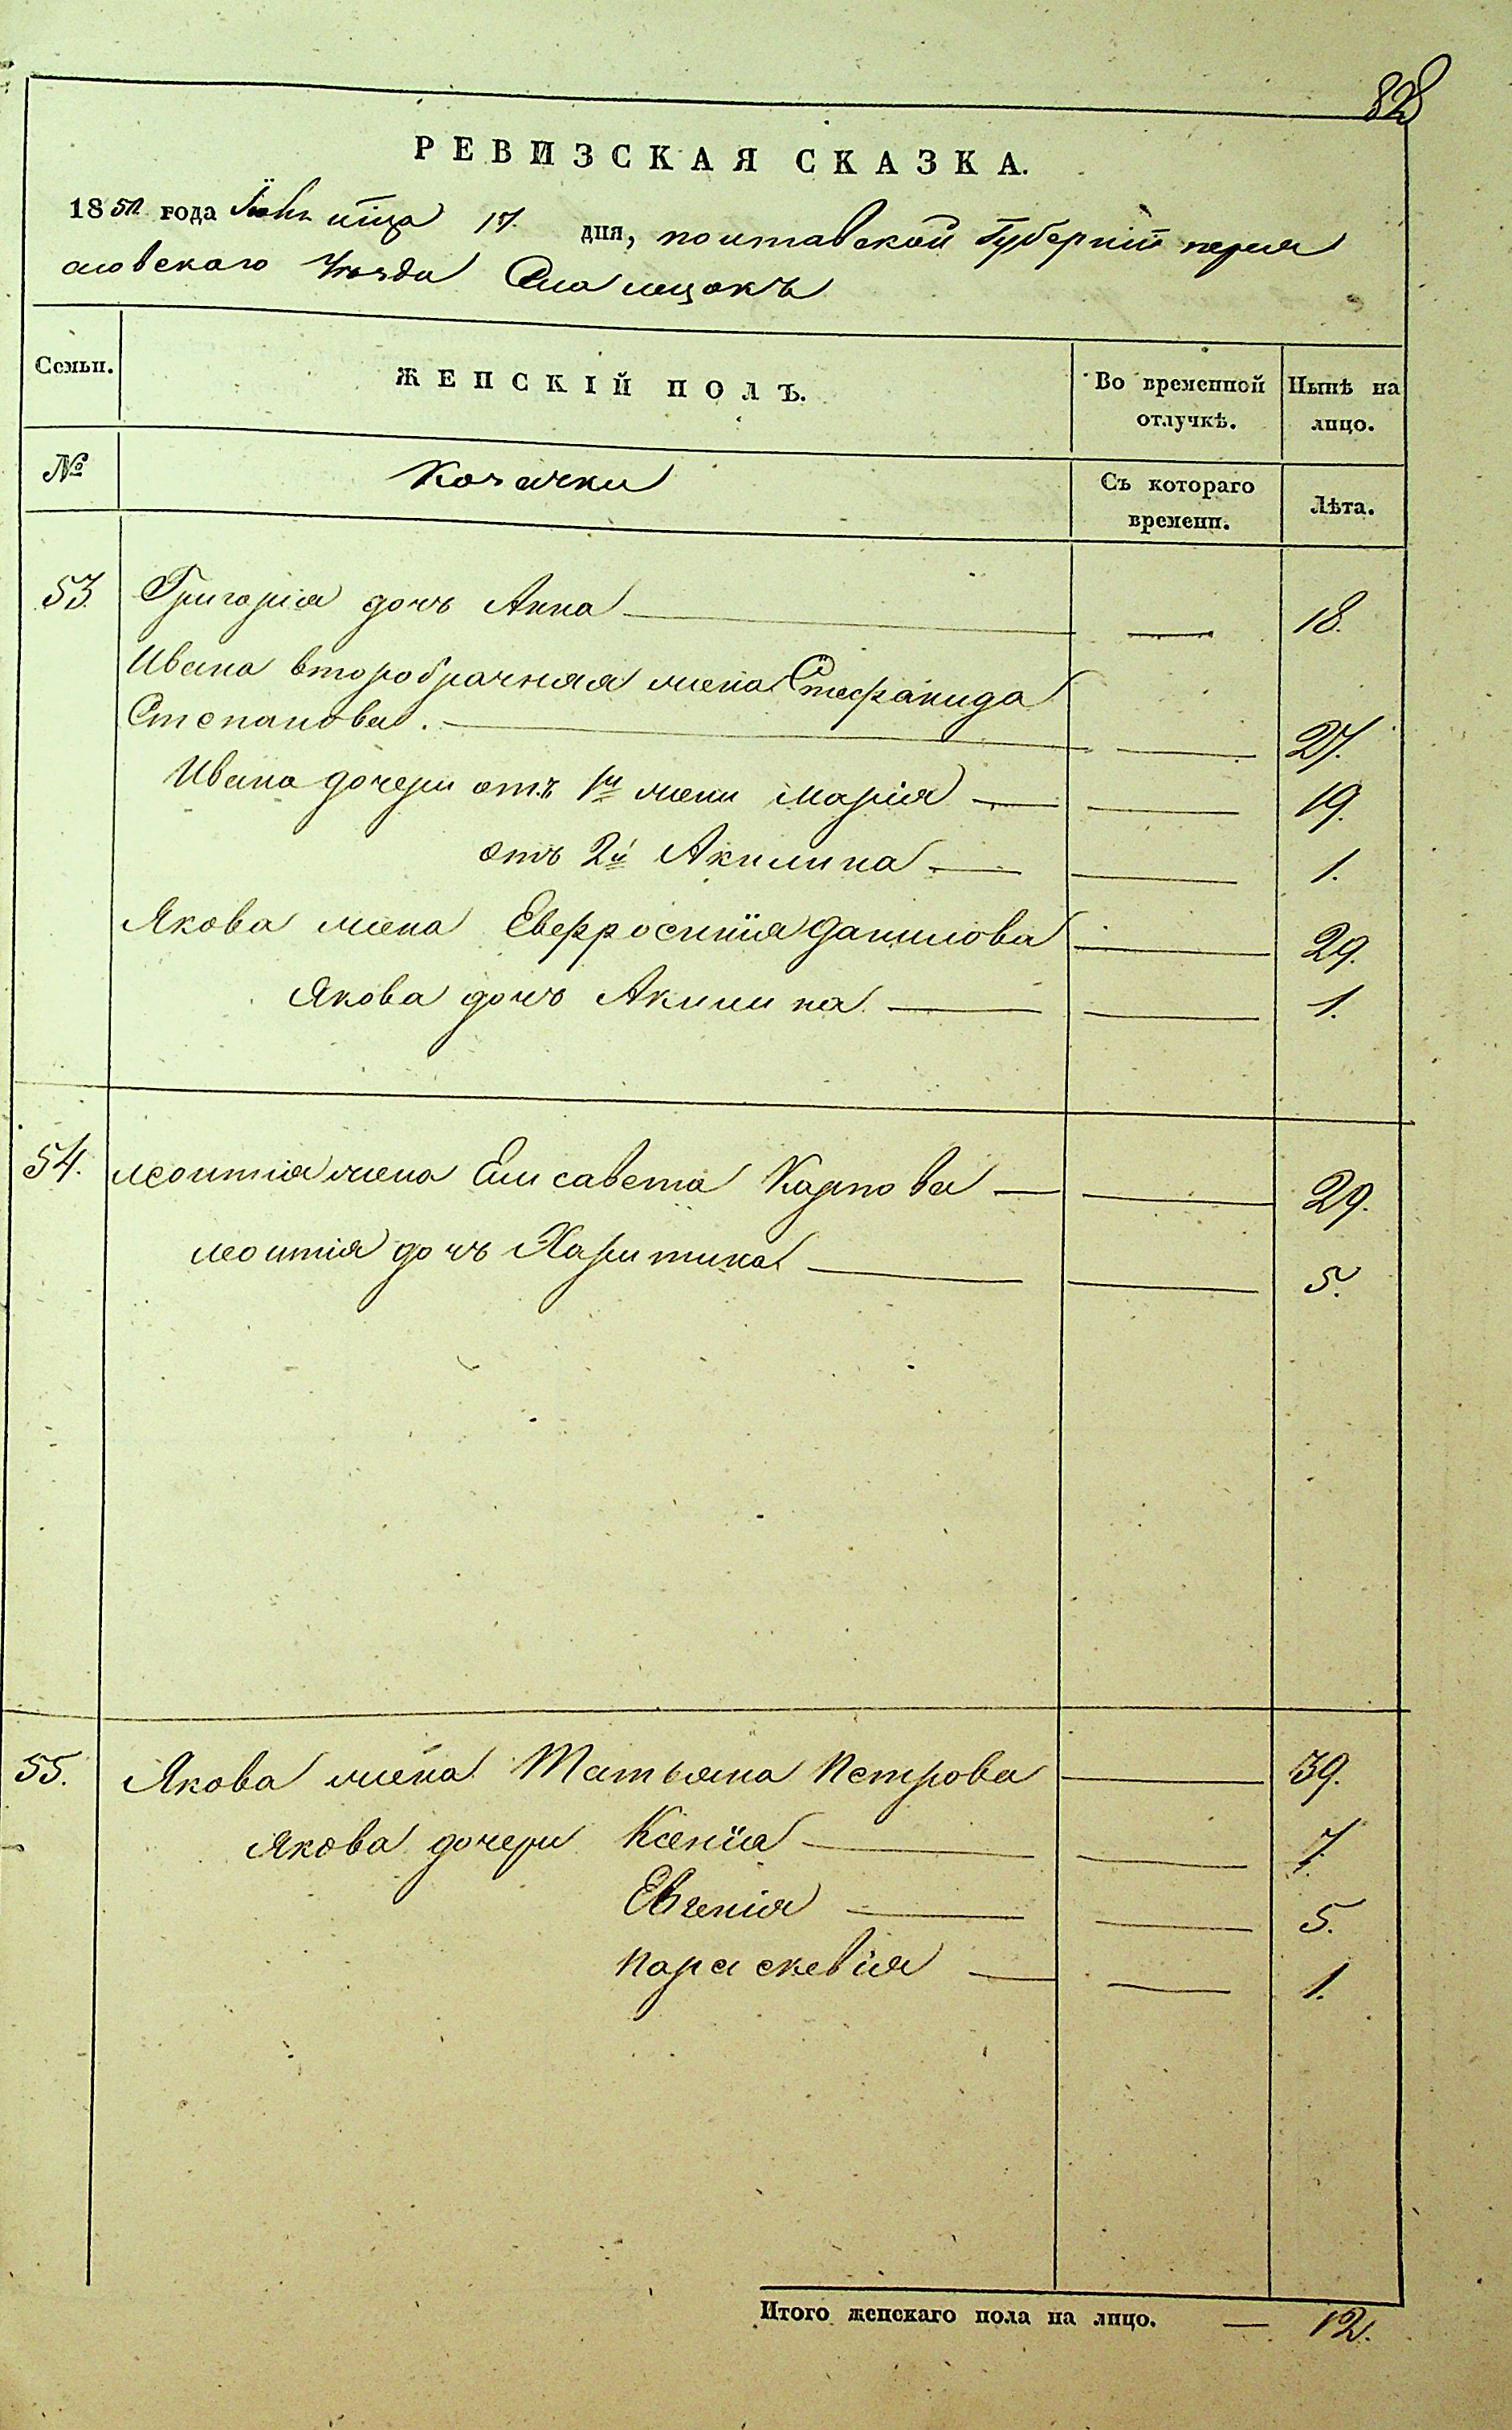 828
РЕВИЗСКАЯ СКАЗКА.
185 года мца 17. дня, полтавской Губерніи перея
словскаго Уезда
Семьи.
ЖЕНСКІЙ ПОЛЪ.
Во временной отлучкѣ.
Нынѣ на лицо.
№
Козачки
Съ котораго времени.
Лѣта.
53. Григорія дочь Анна — — 18.
Ивана второбрачная жена Стефанида
Степанова. — — 27.
Ивана дочери отъ 1й жены Марія — — 19.
отъ 2й Акилина — — 1.
Якова жена Евфросинія Данилова — 29.
Якова дочь Акилина — — 1.
54. Леонтія жена Елисавета Карпова — — 29.
Леонтія дочь Харитина — — 5.
55. Якова жена Татьяна Петрова — 39.
Якова дочери Ксенія — — 7.
Евгенія — — 5.
Параскевія — — 1.
Итого женскаго пола на лицо. — 12.